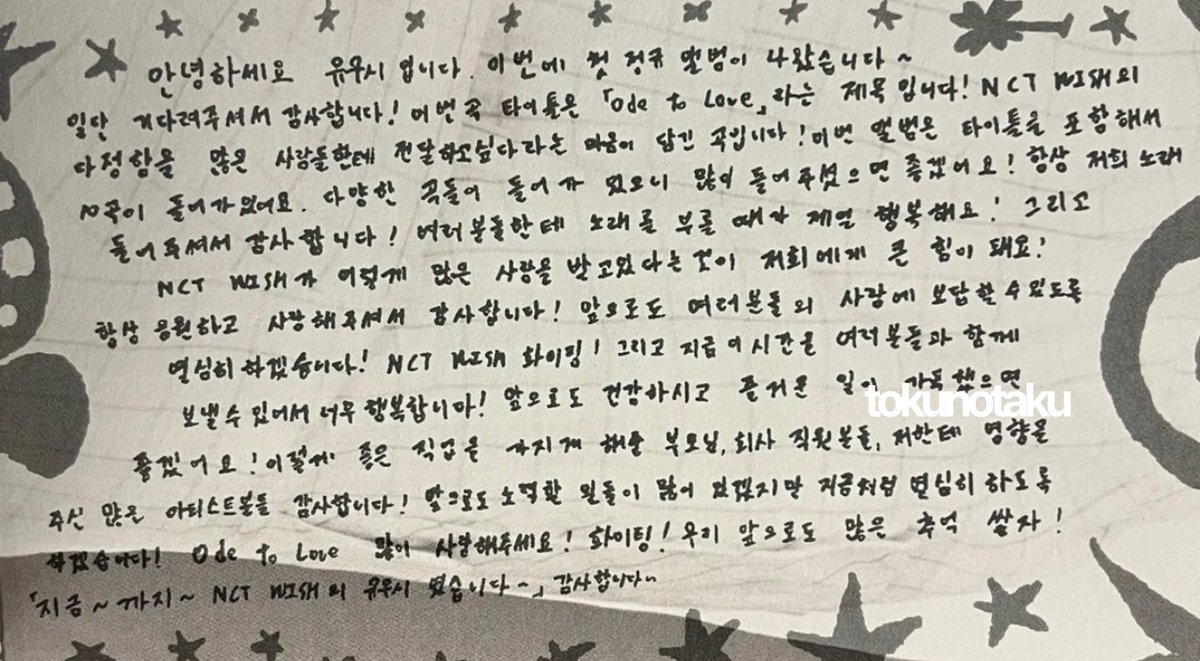 안녕하세요 유우시입니다. 이번에 첫 정규 앨범이 나왔습니다~
일단 기다려주셔서 감사합니다! 이번곡 타이틀은 「Ode to Love」라는 제목입니다! NCT WISH의
다정함을 많은 사람들한테 전달하고싶다라는 마음이 담긴 곡입니다! 이번 앨범은 타이틀을 포함해서
10곡이 들어가있어요. 다양한 곡들이 들어가 있으니 많이 들어주셨으면 좋겠어요! 항상 저희 노래
들어주셔서 감사합니다! 여러분들한테 노래를 부를 때가 제일 행복해요! 그리고
NCT WISH가 이렇게 많은 사랑을 받고있다는것이 저희에게 큰 힘이 돼요!
항상 응원하고 사랑해주셔서 감사합니다! 앞으로도 여러분들의 사랑에 보답할수있도록
열심히하겠습니다! NCT WISH 화이팅! 그리고 지금 이시간을 여러분들과 함께
보낼수있어서 너무 행복합니다! 앞으로도 건강하시고 즐거운 일이 가득했으면
tokunotaku
좋겠어요! 이렇게 좋은 직업을 가지게 해준 부모님, 회사 직원분들, 저한테 영향을
주신 많은 아티스트분들 감사합니다! 앞으로도 노력할 일들이 많이 있겠지만 지금처럼 열심히 하도록
하겠습니다! Ode to Love 많이 사랑해주세요! 화이팅! 우리 앞으로도 많은 추억 쌓자!
「지금~까지~ NCT WISH의 유우시 였습니다~」 감사합니다~